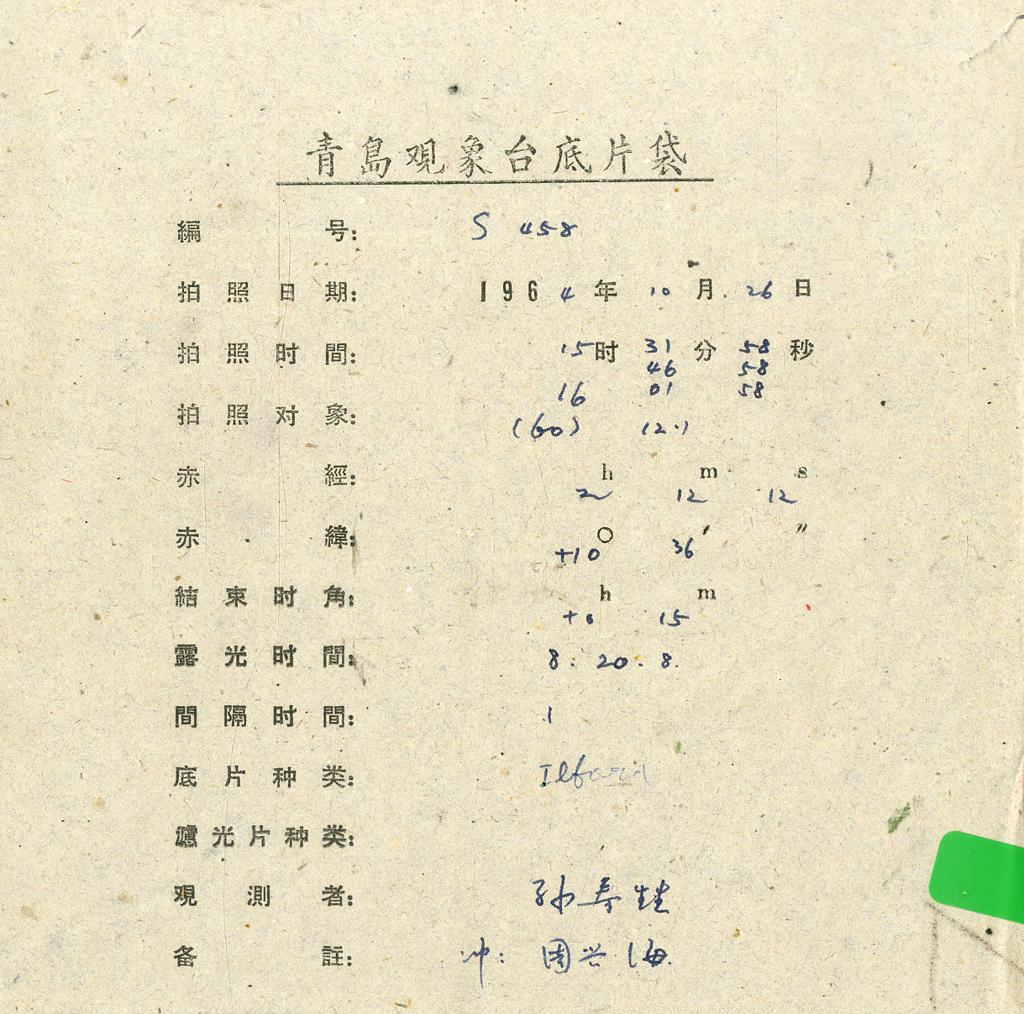 青島观象台底片袋
編 号: S 458
拍照日期: 1964年10月26日
拍照时間: 15时31分58秒
46 58
16 01 58
拍照对象: (60) 12.1
赤 經: h m s
2 12 12
赤 緯: ○ ′ ″
+10 36
結束时角: h m
+0 15
露光时間: 8. 20. 8.
間隔时間: 1
底片种类: Ilford
濾光片种类:
观測者: 孙寿
备 註: 冲: 周兴海